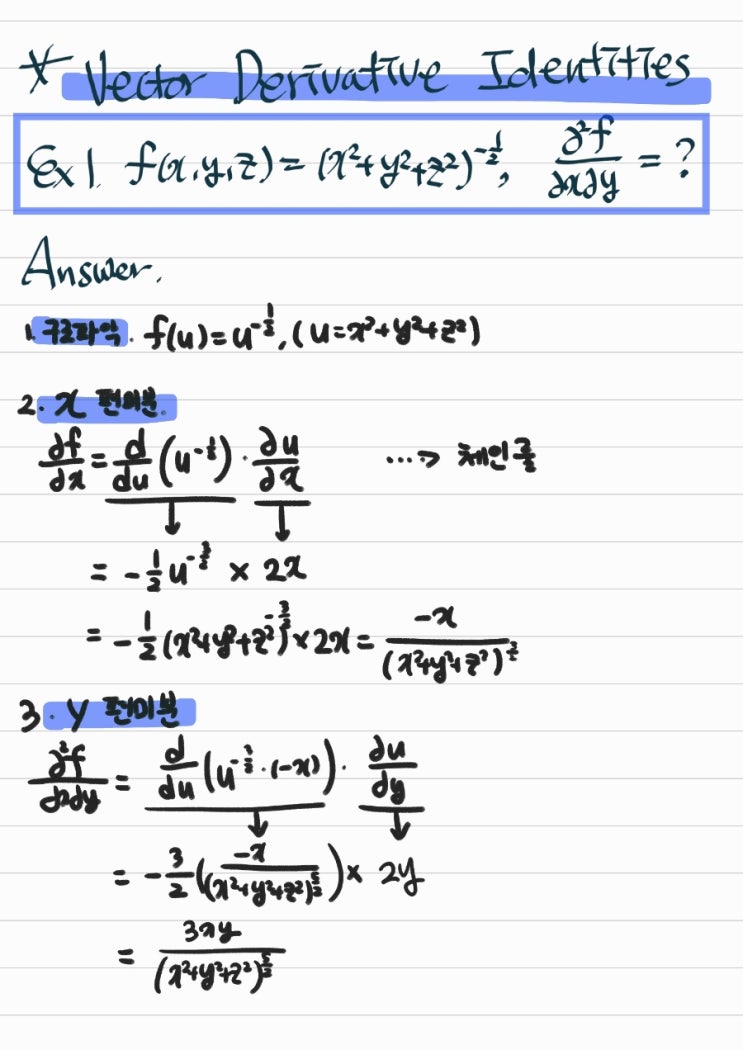 * Vector Derivative Identities
Ex 1. f(x,y,z) = (x²+y²+z²)^(-1/2), ∂²f/∂x∂y = ?
Answer.
1. 구조파악. f(u)=u^(-1/2), (u=x²+y²+z²)
2. x 편미분.
∂f/∂x = d/du (u^(-1/2)) · ∂u/∂x ···→ 체인룰
↓ ↓
= -1/2 u^(-3/2) × 2x
= -1/2 (x²+y²+z²)^(-3/2) × 2x = -x/(x²+y²+z²)^(3/2)
3. y 편미분
∂²f/∂x∂y = d/du (u^(-3/2) · (-x)) · ∂u/∂y
↓ ↓
= -3/2 (-x/(x²+y²+z²)^(5/2)) × 2y
= 3xy/(x²+y²+z²)^(5/2)